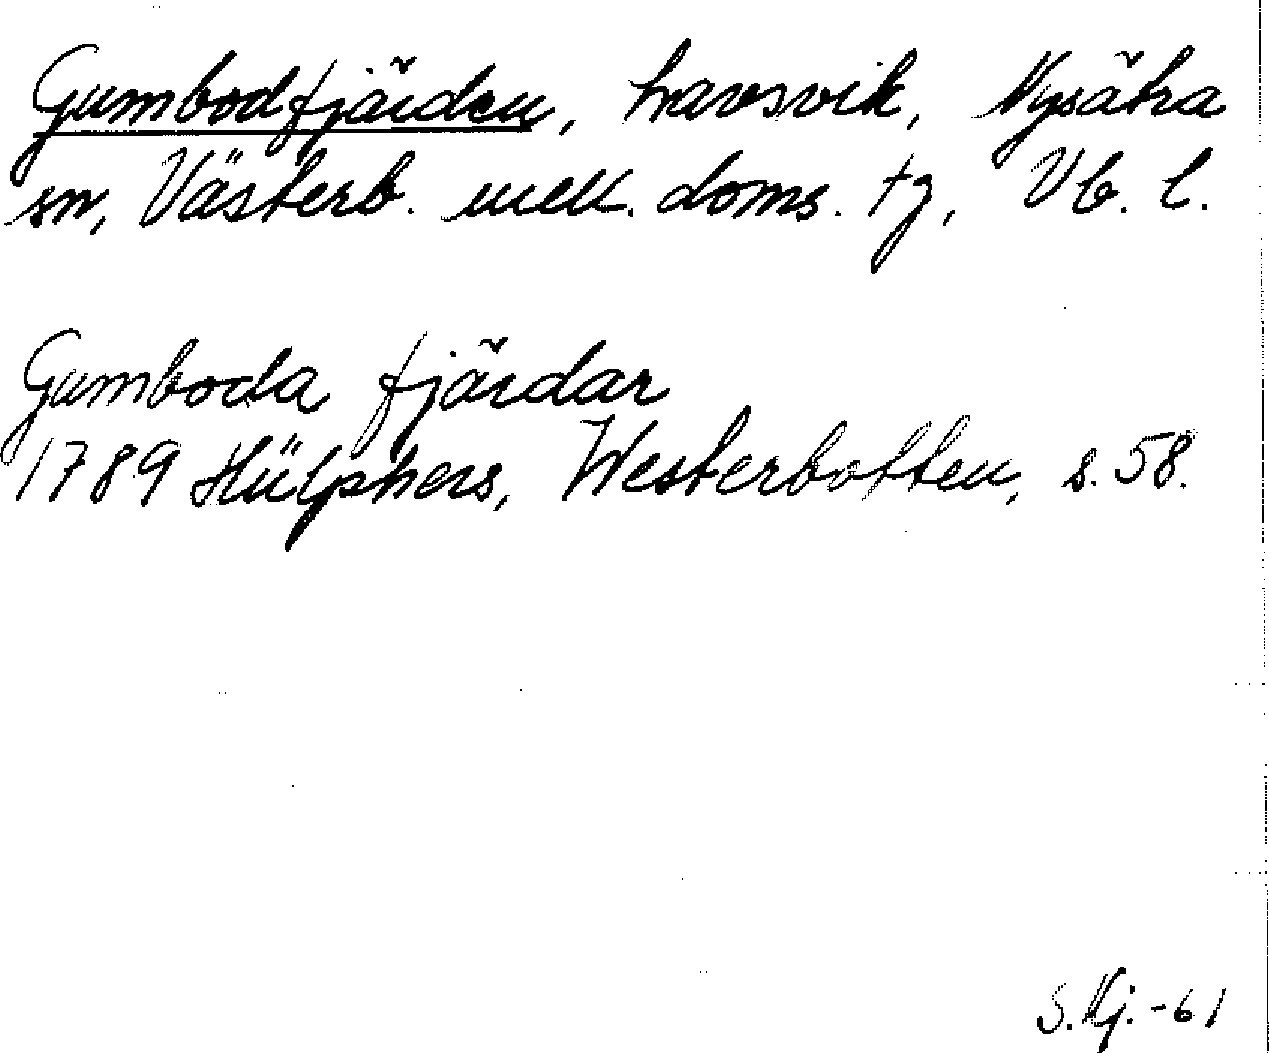 Gumbodfjärden, havsvik, Nysätra
sn, Västerb. mell. doms. tg, Vb. l.
Gumboda fjärdar
1789 Hülphers, Westerbotten, s. 58.
S. Nj. -61